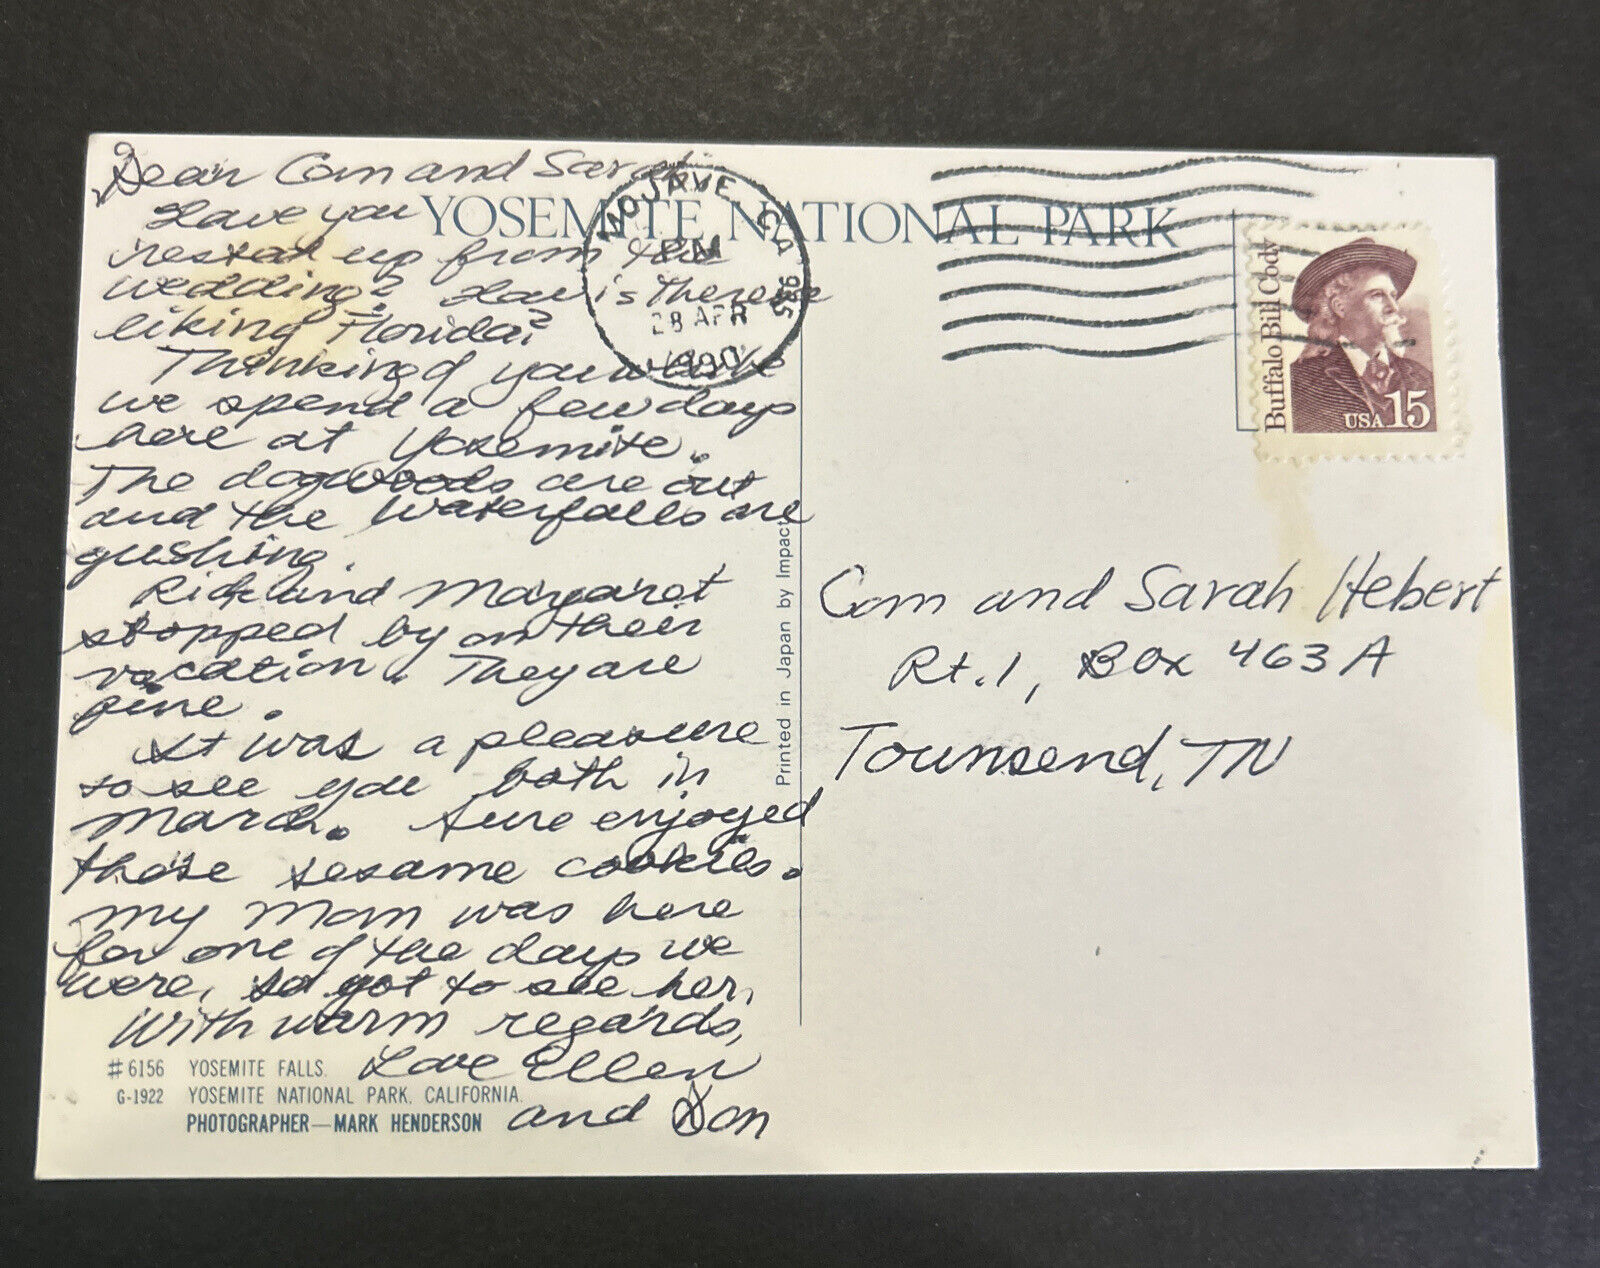 Dear Com and Sarah
Have you
rested up from the
wedding? How is Therese
liking Florida?
Thinking of you while
we spend a few days
here at Yosemite.
The dogwoods are out
and the waterfalls are
gushing.
Rick and Margaret
stopped by on their
vacation. They are
fine.
It was a pleasure
to see you both in
March. Sure enjoyed
those sesame cookies.
My Mom was here
for one of the days we
were, so got to see her.
With warm regards,
Love Ellen
and Don
#6156 YOSEMITE FALLS.
G-1922 YOSEMITE NATIONAL PARK, CALIFORNIA.
PHOTOGRAPHER—MARK HENDERSON
YOSEMITE NATIONAL PARK
MOJAVE CA 935
PM
28 APR
1990
Printed in Japan by Impact
Buffalo Bill Cody
USA 15
Com and Sarah Hebert
Rt. 1, Box 463 A
Townsend, TN